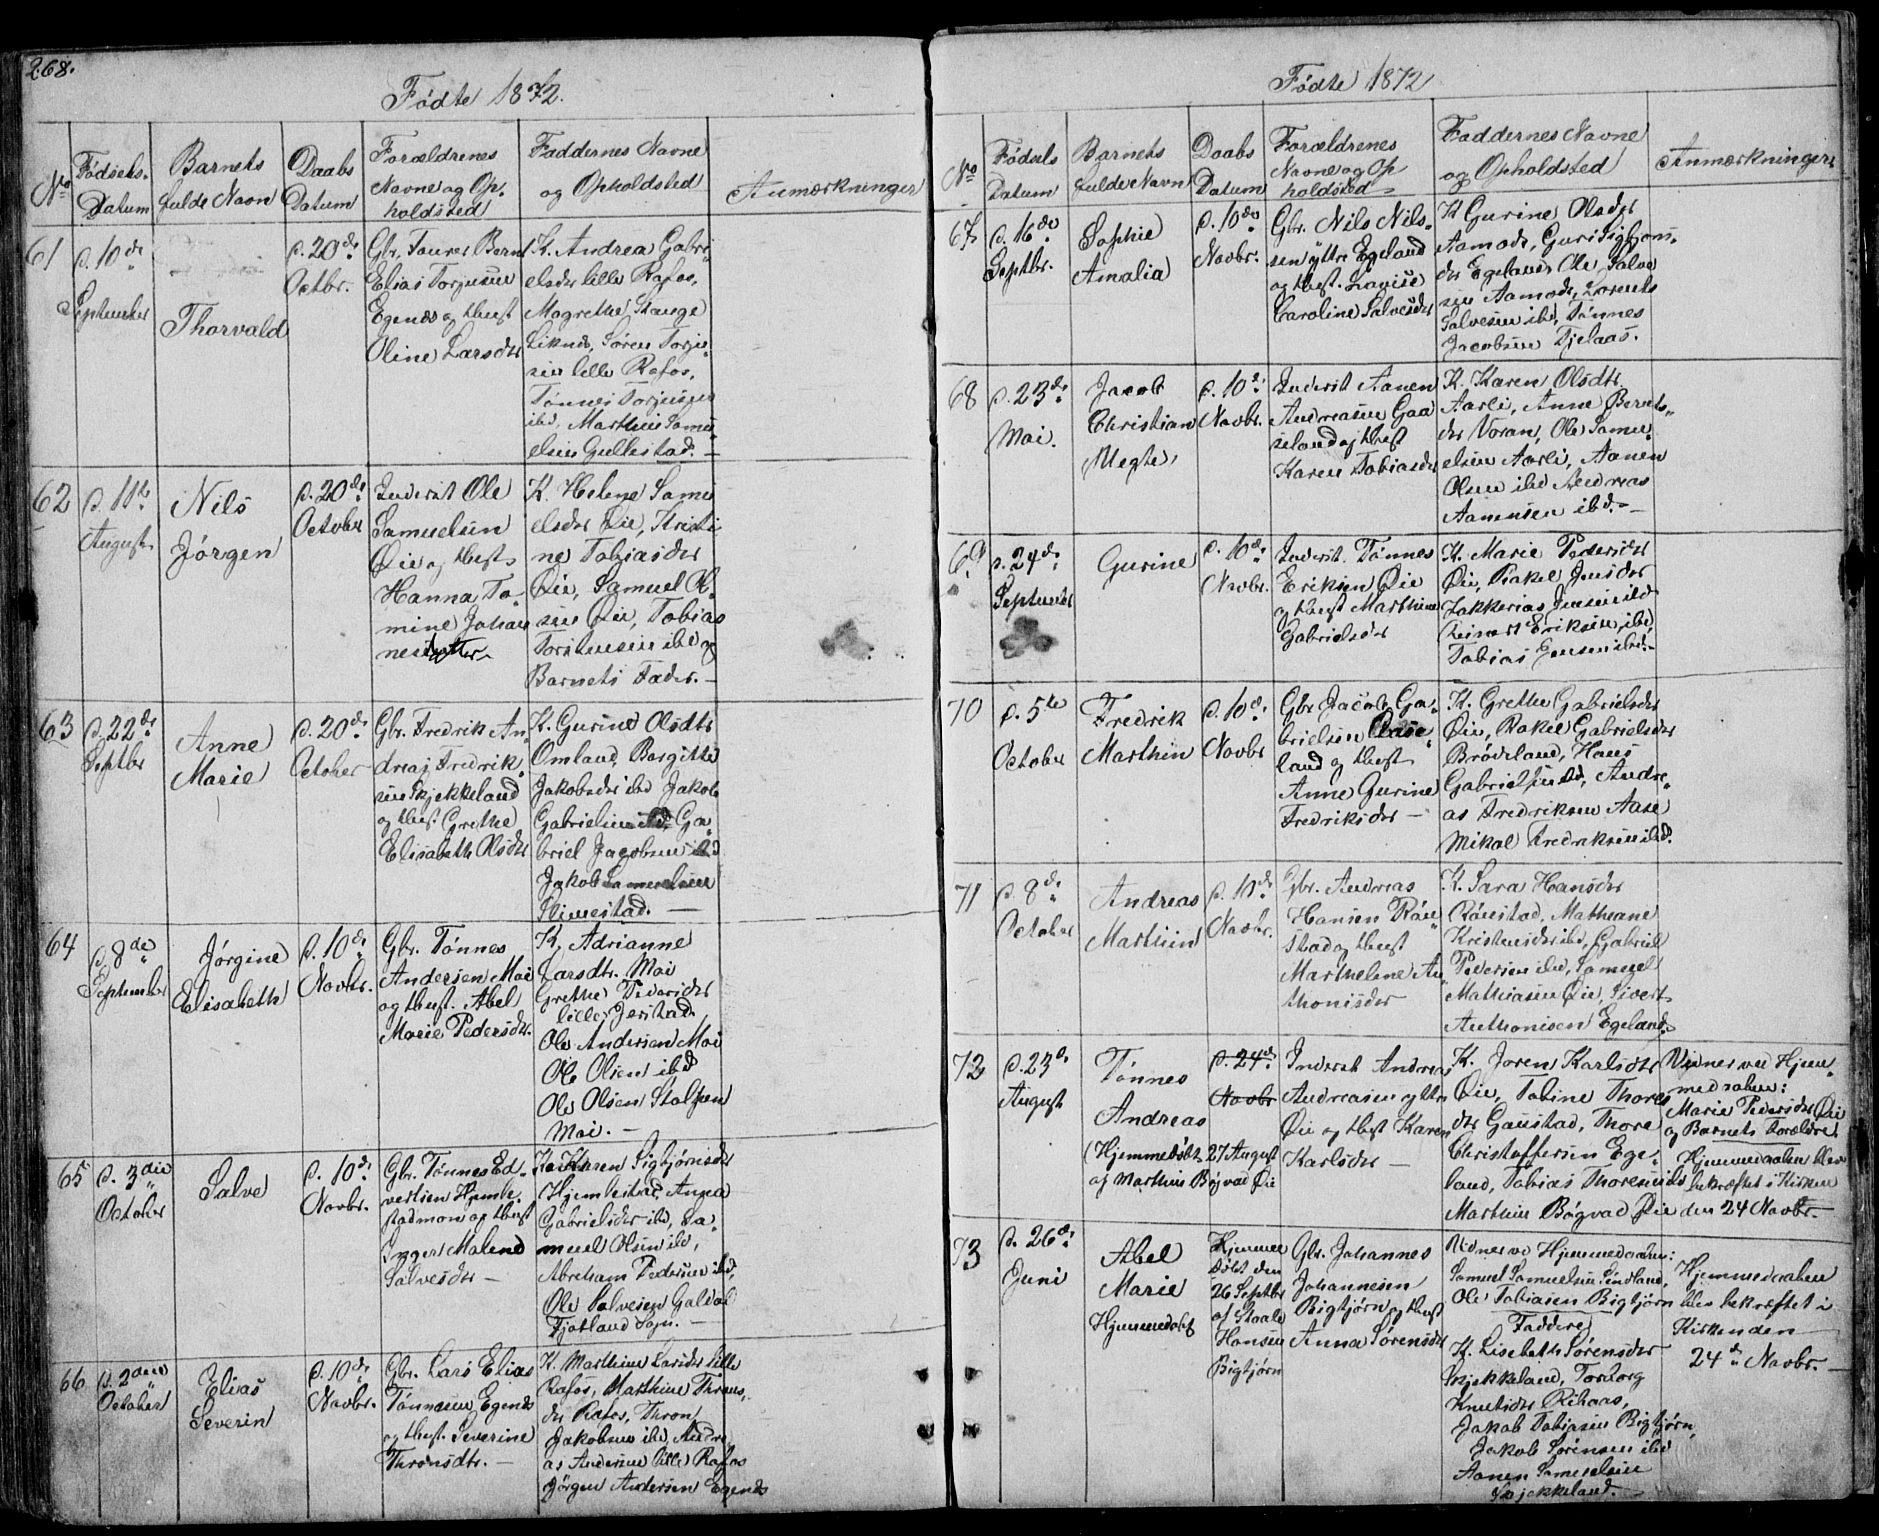 268.
Födte 1872.
No
Födsels-
Datum
Barnets
fulde Navn
Daabs
Datum
Forældrenes
Navne og Op-
holdsted
Faddernes Navne
og Opholdsted
Anmærkninger
61
d. 10de
September
Thorvald
d. 20de
Octbr.
Gbr. Faurer Bernt
Elias Torjusen
Egenæs og Hust
Oline Larsdtr
K. Andrea Gabri-
elsdtr lille Rafos,
Magrethe Stange
Liknes, Søren Torju-
sen lille Rafos,
Tønnes Torjusen
ibd, Marthin Samu-
elsen Gullestad. —
62
d. 11te
August
Nils
Jørgen
d. 20de
Octobr
Inderst Ole
Samuelsen
Øie og Hust
Hanna To-
mine Johan
nesdatter
K. Helene Samu
elsdtr Øie, Kristi
ne Tobiasdtr
Øie, Samuel Ol-
sen Øie, Tobias
Torstensen ibd og
Barnets Fader. —
63
d. 22de
Septbr
Anne
Marie
d. 20de
October
Gbr. Fredrik An-
dreas Fredrik-
sen Skjekkeland
og Hust Grethe
Elisabeth Olsdtr
K. Gurine Olsdtr
Omland, Bergitte
Jakobsdtr ibd Jakob
Gabrielsen ibd Ga-
briel Jacobsen ibd
Jakob Samuelsen
Slimestad. —
64
d. 8de
September
Jørgine
Elisabeth
d. 10de
Novbr.
Gbr. Tønnes
Andersen Moi
og Hust. Abel
Marie Pedersdtr.
K. Adrianne
Larsdtr. Moi
Grethe Pedersdtr
lille Jerstad
Ole Andersen Moi
Ole Olsen ibd
Ole Olsen Stolpen
Moi. —
65
d. 3die
October
Salve
d. 10de
Novbr.
Gbr. Tønnes Ed-
vertsen Hjemle-
stadmoen og Hust
Inger Malene
Salvesdtr —
K. Karen Sigbjørnsdtr
Hjemlestad, Anna
Gabrielsdtr ibd, Sa-
muel Olsen ibd,
Abraham Pedersen ibd,
Ole Salvesen Galdal
Fjotland Sogn. —
66
d. 2den
October
Elias
Severin
d. 10de
Novbr.
Gbr. Lars Elias
Tønnesen Egenæs
og Hust. Severine
Thronsdtr. —
K. Marthine Larsdtr lille
Rafos, Marthine Throns-
dtr Rafos, Thron
Jakobsen ibd, Andre
as Andersen lille Rafos
Jørgen Andersen Egenæs
Födte 1872
No
Födsels
Datum
Barnets
fulde Navn
Daabs
Datum
Forældrenes
Navne og Op
holdsted
Faddernes Navne
og Opholdsted
Anmærkninger
67
d. 16de
Septbr.
Sophie
Amalia
d. 10de
Novbr.
Gbr. Nils Nils-
sen yttre Egeland
og Hust. Lovise
Caroline Salvesdtr
K Gurine Olsdtr
Aamodt, Guri Sigbjørns-
dtr Egeland, Ole Salve
sen Aamodt, Lorents
Salvesen ibd, Tønnes
Jacobsen Tjelaas.
68
d. 23de
Mai.
Jacob
Christian
Megte
d. 10de
Novbr.
Inderst Aanen
Andreasen Gaa
seland og Hust
Karen Tobiasdtr
K. Karen Olsdtr.
Aarli, Anne Bernts-
dtr Voran, Ole Samu-
elsen Aarli, Aanen
Olsen ibd Andreas
Aanensen ibd. —
69
d. 24de
September
Gurine
d. 10de
Novbr.
Inderst. Tønnes
Eriksen Øie
og Hust Marthine
Gabrielsdtr
K. Marie Pedersdtr
Øie, Rakel Jensdtr
Zakkarias Jensen ibd
Reinert Eriksen ibd,
Tobias Jensen ibd. —
70
d. 5te
October
Fredrik
Marthin
d. 10de
Novbr
Gbr. Jacob Ga-
brielsen Øxse-
land og Hust
Anne Gurine
Fredriksdtr —
K. Grethe Gabrielsdtr
Øie, Rakel Gabrielsdtr
Brøveland, Hans
Gabrielsen ibd, Andre-
as Fredriksen Aase
Mikal Fredriksen ibd.
71
d. 8de
October
Andreas
Marthin
d. 10de
Novbr.
Gbr. Andreas
Hansen Røn
stad og Hust
Marthelene An
thonisdtr
K. Sara Hansdtr
Rønstad, Matheane
Kristensdtr ibd, Gabriel
Pedersen ibd, Samuel
Mathiasen Øie, Sivert
Anthonisen Egeland.
72
d. 23de
August
Tønnes
Andreas
(Hjemmedøbt 27 August
af Marthin Bøgvad Øie
d. 24de
Novbr
Inderst Andreas
Andreasen yttre
Øie og Hust Karen
Karlsdtr —
K. Joren Karlsdtr
Øie, Tobine Thores
dtr Gaustad, Thore
Christoffersen Ege-
land, Tobias Thoresen ibd
Marthin Bøgvad Øie
Vidner ved Hjem-
medaaben:
Marie Pedersdtr Øie
og Barnets Forældre.
Hjemmedaaben blev
bekræftet i Kirken
den 24 Novbr. —
73
d. 26de
Juni
Abel
Marie
Hjemmedøbt
Hjemme
døbt den
26 Septbr
af Staale
Hansen
Bigtjørn
Gbr. Johannes
Johannesen
Bigtjørn og Hust
Anna Sørensdtr
Vidner ve Hjemmedaaben:
Samuel Samuelsen Sindland,
Ole Tobiasen Bigtjørn
Faddere
K. Lisebeth Sørensdtr
Skjekkeland, Torborg
Knutsdtr Rihaas,
Jakob Tobiasen Bigtjørn,
Jakob Sørensen ibd
Aanen Samuelsen
Skjekkeland. —
Hjemmedaaben
blev bekræftet i
Kirken den
24de Novbr. —